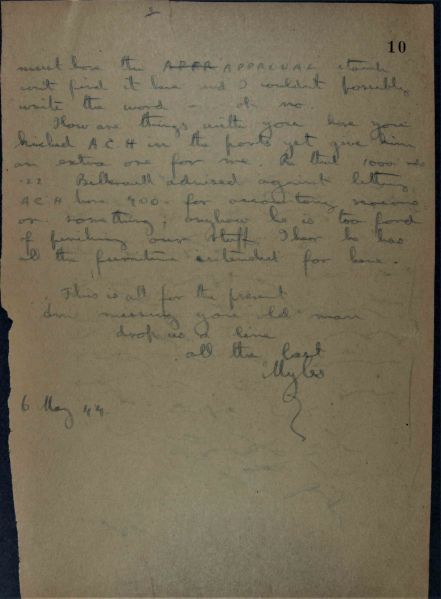 2
10
must have the APPR APPROVAL stands
cant find it here and I couldn't possibly
write the word — oh no.
How are things with you have you
kicked ACH in the pants yet give him
an extra one for me. Re that 1000
advised against letting
ACH have 400 for
or something, anyhow he is too fond
of pinching our stuff I hear he has
all the furniture intended for here.
This is all for the present
Am missing you old man
drop us a line
all the best
Myles
6 May 44